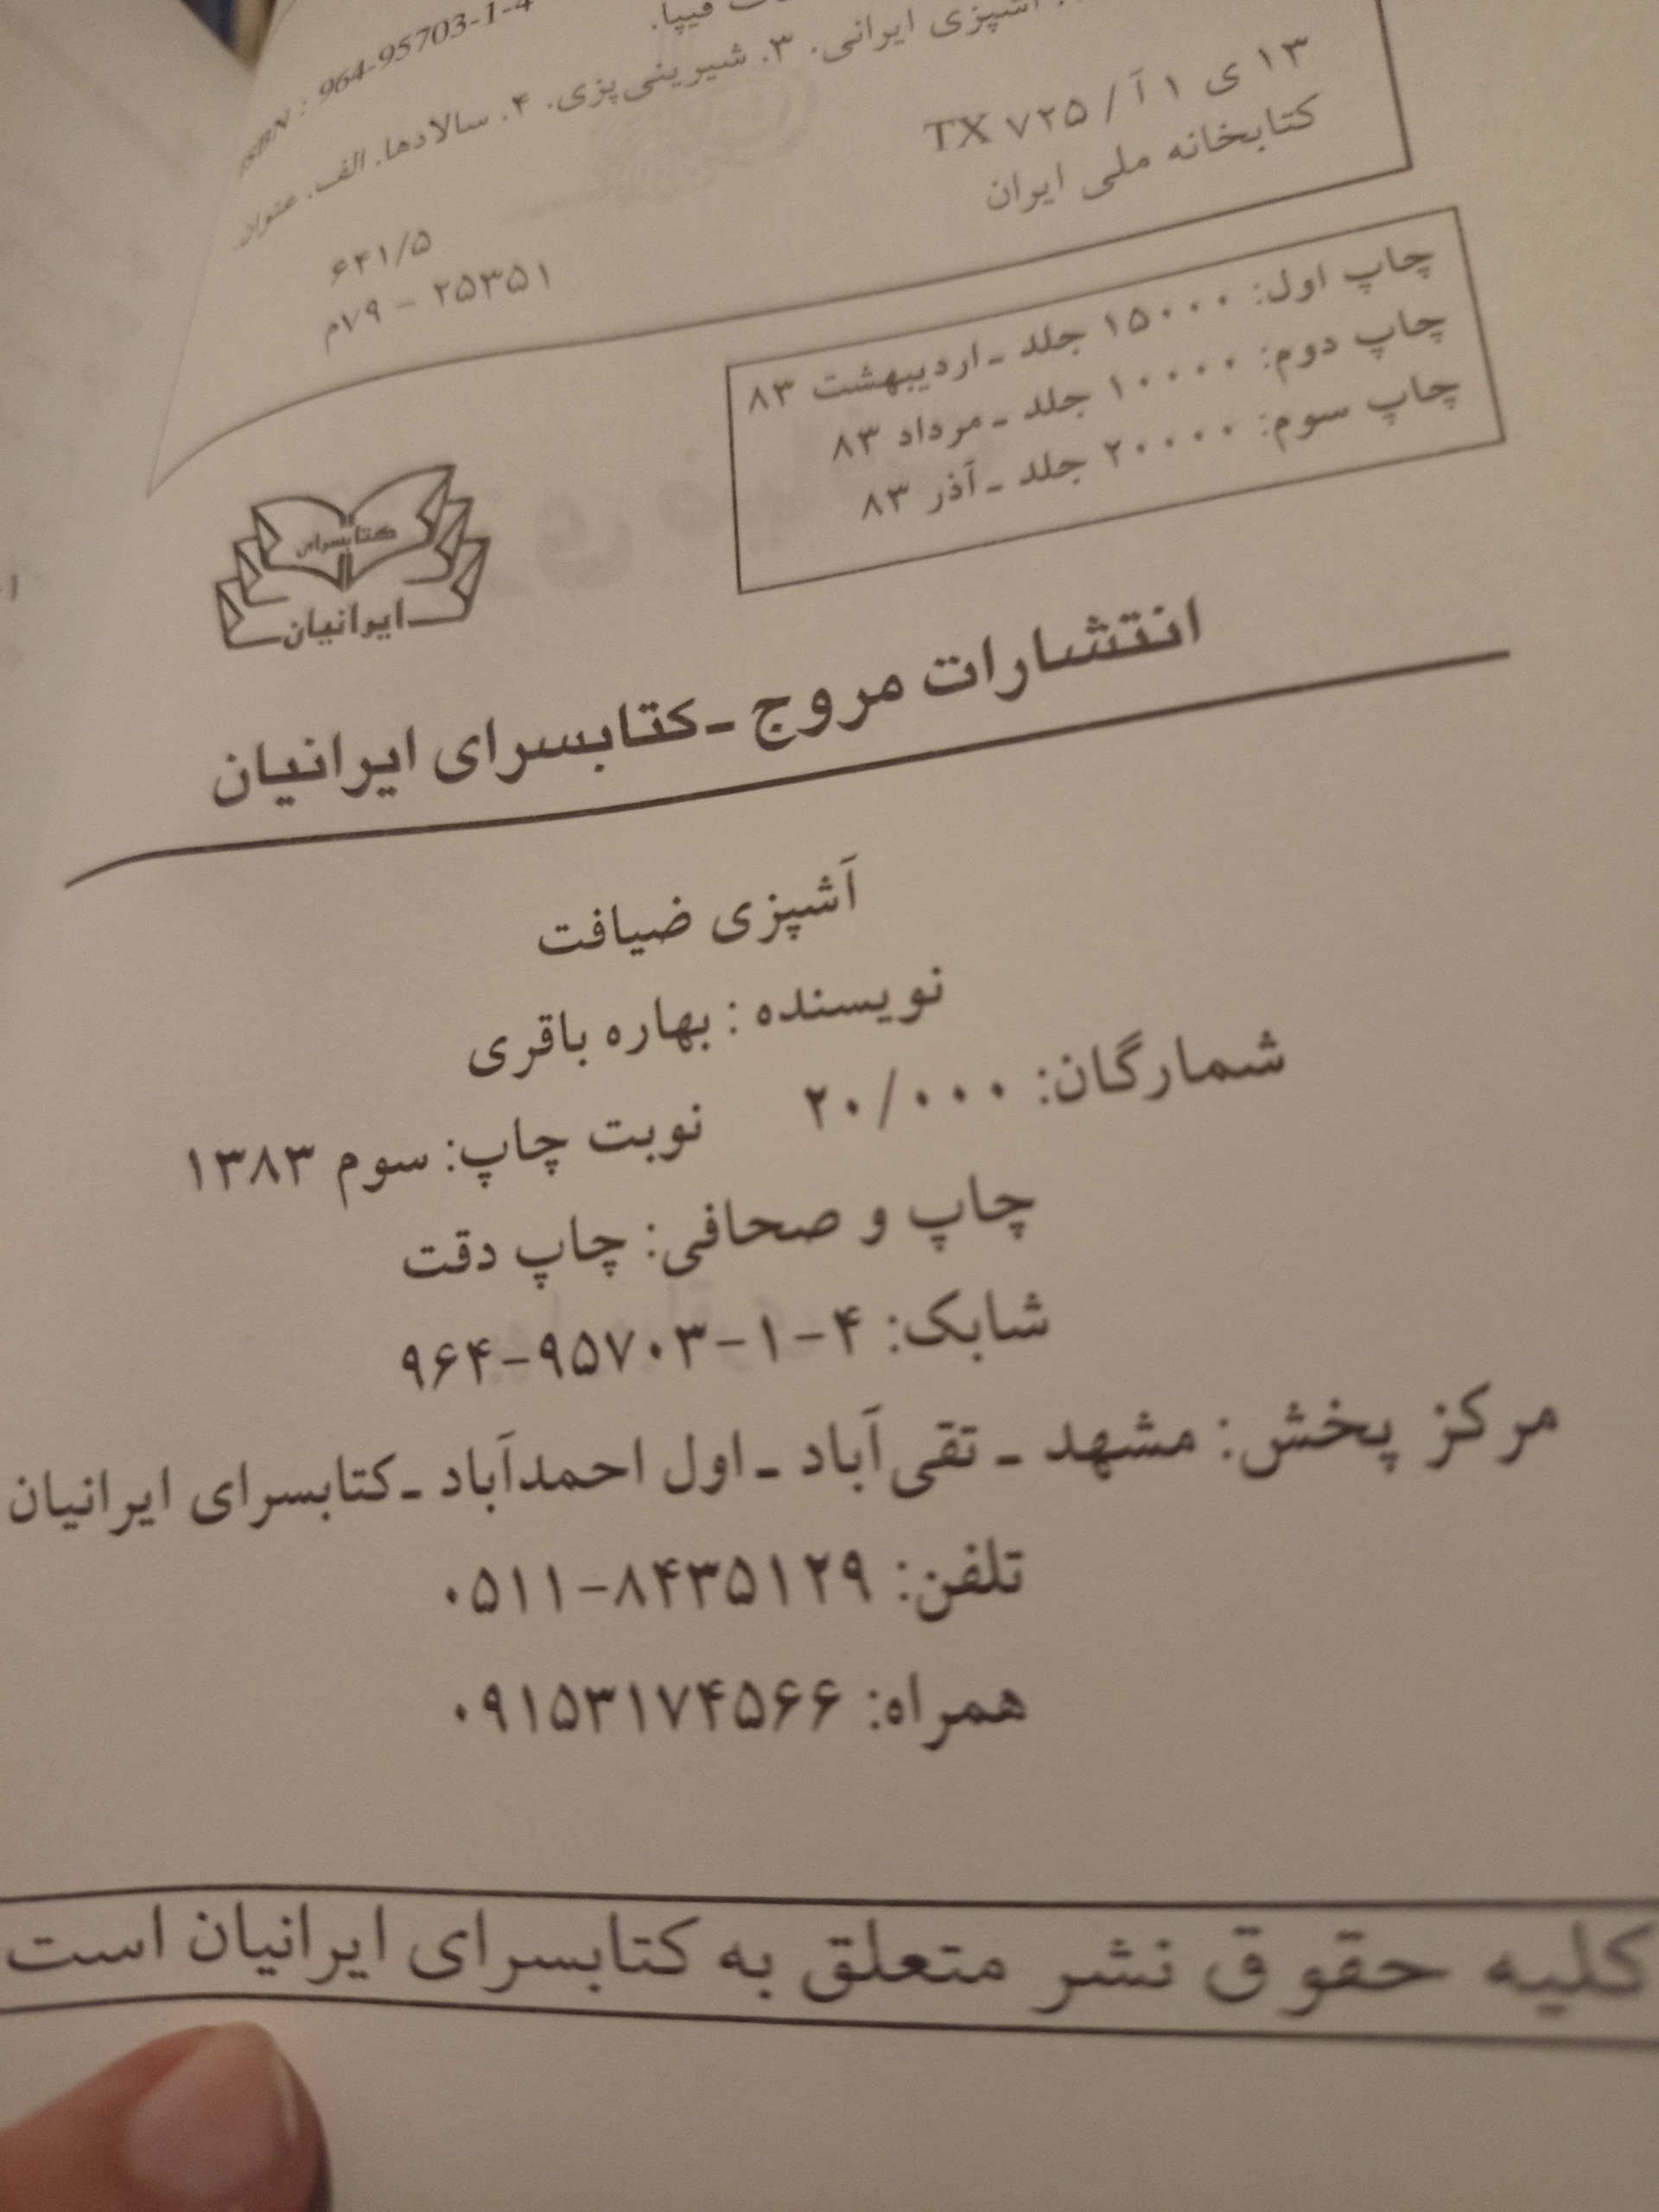 ISBN : 964-95703-1-4
فیپا.
آشپزی ایرانی. ۳. شیرینی‌پزی. ۴. سالادها. الف. عنوان.
۱۳ ی ۱ آ / ۷۲۵ TX
۶۴۱/۵
کتابخانه ملی ایران
۲۵۳۵۱ – ۷۹م
چاپ اول: ۱۵۰۰۰ جلد ـ اردیبهشت ۸۳
چاپ دوم: ۱۰۰۰۰ جلد ـ مرداد ۸۳
چاپ سوم: ۲۰۰۰۰ جلد ـ آذر ۸۳
کتابسرای
ایرانیان
انتشارات مروج ـ کتابسرای ایرانیان
آشپزی ضیافت
نویسنده : بهاره باقری
شمارگان: ۲۰/۰۰۰ نوبت چاپ: سوم ۱۳۸۳
چاپ و صحافی: چاپ دقت
شابک: ۴-۱-۹۵۷۰۳-۹۶۴
مرکز پخش: مشهد ـ تقی‌آباد ـ اول احمدآباد ـ کتابسرای ایرانیان
تلفن: ۸۴۳۵۱۲۹-۰۵۱۱
همراه: ۰۹۱۵۳۱۷۴۵۶۶
کلیه حقوق نشر متعلق به کتابسرای ایرانیان است